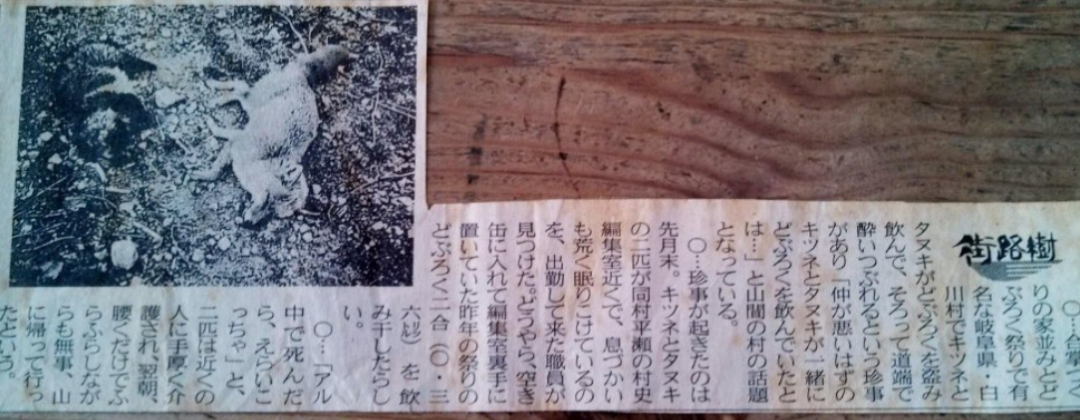 街路樹
○…合掌づく
りの家並みとど
ぶろく祭りで有
名な岐阜県・白
川村でキツネと
タヌキがどぶろくを盗み
飲んで、そろって道端で
酔いつぶれるという珍事
があり「仲が悪いはずの
キツネとタヌキが一緒に
どぶろくを飲んでいたと
は…」と山間の村の話題
となっている。
○…珍事が起きたのは
先月末。キツネとタヌキ
の二匹が同村平瀬の村史
編集室近くで、息づかい
も荒く眠りこけているの
を、出勤して来た職員が
見つけた。どうやら、空き
缶に入れて編集室裏手に
置いていた昨年の祭りの
どぶろく二合（〇・三
六㍑）を飲
み干したらし
い。
○…「アル
中で死んだ
ら、えらいこ
っちゃ」と、
二匹は近くの
人に手厚く介
護され、翌朝、
腰くだけでふ
らふらしなが
らも無事、山
に帰って行っ
たという。